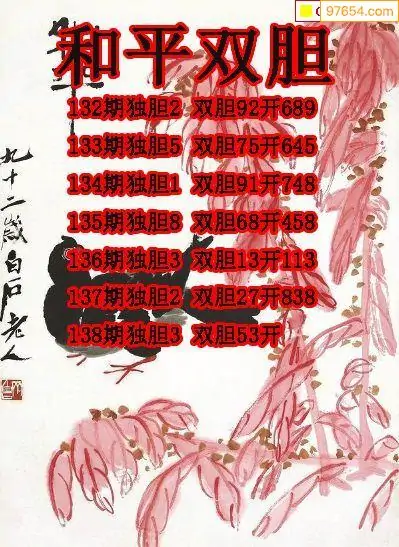 97654.com
和平双胆
132期独胆2 双胆92开689
133期独胆5 双胆75开645
134期独胆1 双胆91开748
135期独胆8 双胆68开458
136期独胆3 双胆13开113
137期独胆2 双胆27开838
138期独胆3 双胆53开
九十二歲白石老人